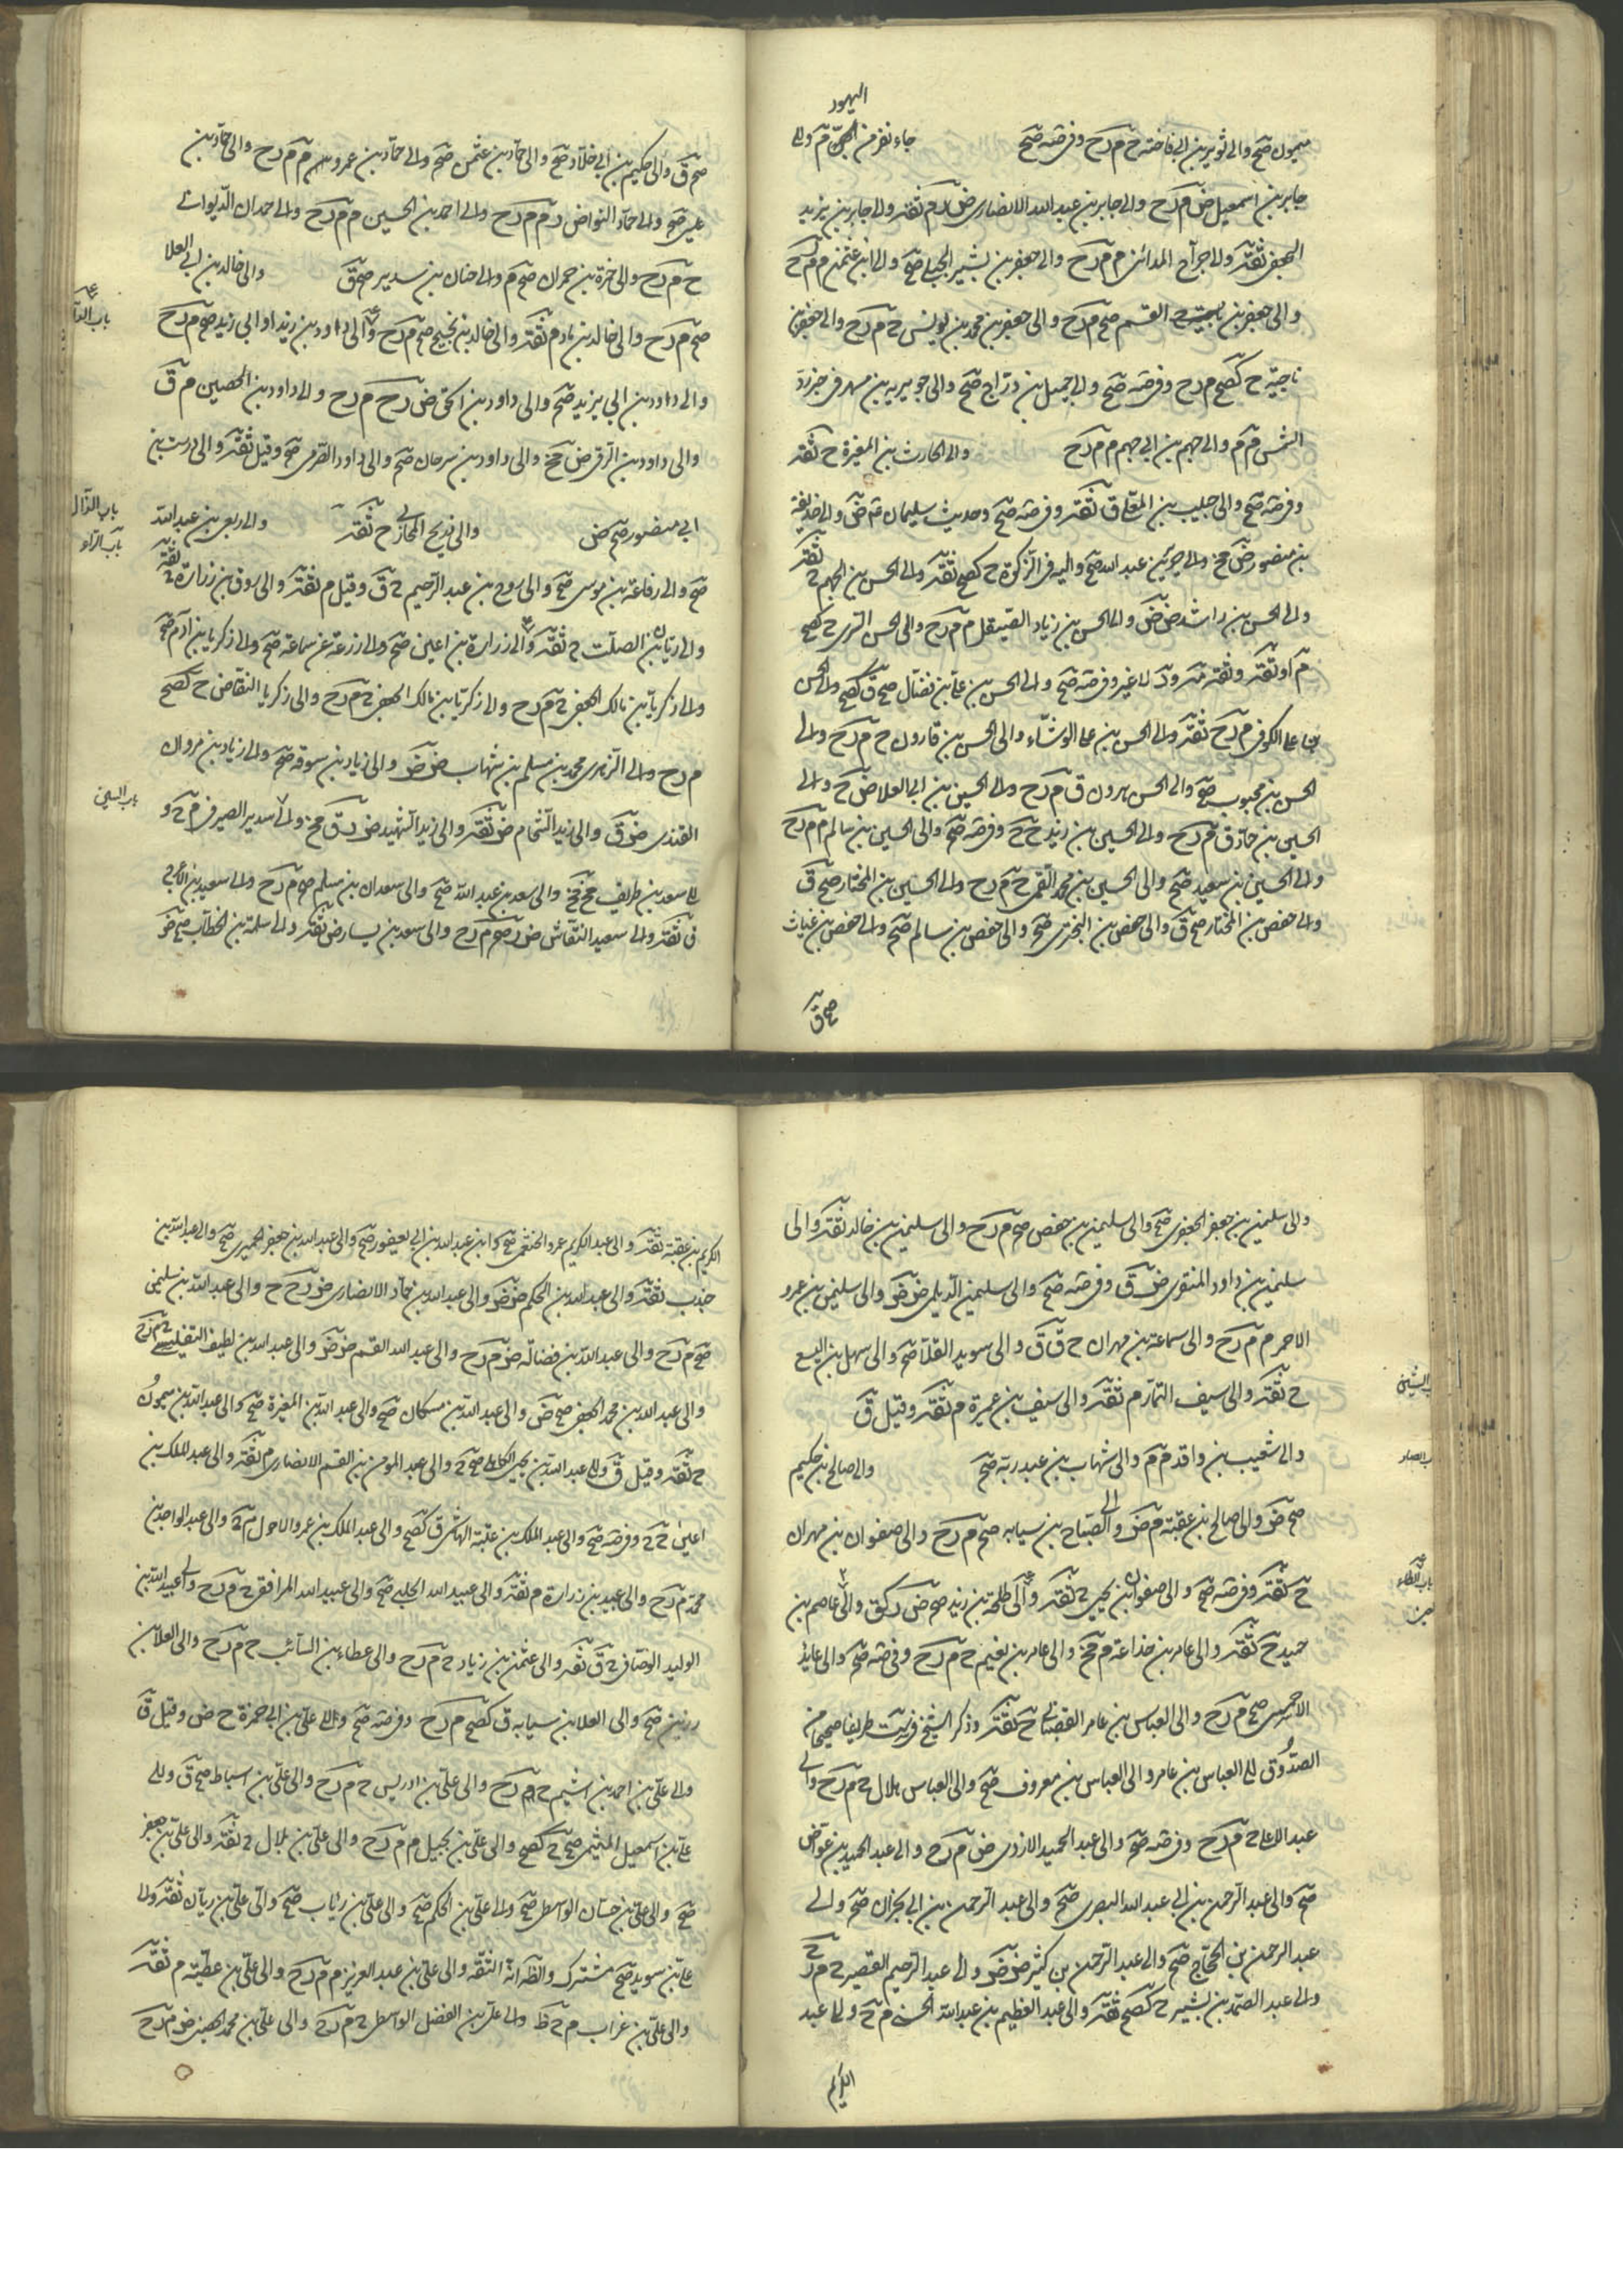 اليهود
ميمون صح والى ثوير بن ابى فاخته ح م د ح وفى ضه صح جاء نفر من م والى
جابر بن اسمعيل ض م د ح والى جابر بن عبد الله الانصارى ض د م ثقة والى جابر بن يزيد
الجعفى ثقة والى جراح المدائنى م م د ح والى جعفر بن بشير البجلى صح والى ابن عثمن م م د ح
والى جعفر بن القسم صح م د ح والى جعفر بن محمد بن يونس ح م د ح والى جعفر بن
ناجية ح كصح م د ح وفى ضه صح والى جميل بن دراج صح والى جويرية بن مسهر فى خبر رد
الشمس م م م والى جهم بن ابى جهم م م د ح والى الحارث بن المغيرة ح ثقة
وفى ضه صح والى حبيب بن المعلى ق ثقة وفى ضه صح وحديث سليمان ض والى حذيفة
بن منصور ض مح والى حريز بن عبد الله صح واليه فى الزكوة ح كصح ثقة والى الحسن بن الجهم ح ثقة
والى الحسن بن راشد ض ض والى الحسن بن زياد الصيقل م م د ح والى الحسن السرى ح كصح
م او ثقة وفى ضه صح والى الحسن بن على بن فضال صح ق كصح والى الحسن
بن على الكوفى م د ح ثقة والى الحسن بن على الوشاء والى الحسن بن قارون ح م د ح والى
الحسن بن محبوب صح والى الحسن هرون ق م د ح والى الحسين بن ابى العلا ض ح والى
الحسين بن حماد ق م د ح والى الحسين بن زيد ح ح وفى ضه صح والى الحسين بن سالم م م د ح
والى الحسين بن سعيد صح والى الحسين بن محمد القمى ح م د ح والى الحسين بن المختار صح ق
والى حفص بن المختار صح ق والى حفص بن البخترى صح والى حفص بن سالم صح والى حفص بن غياث
صح ق
صح ق والى حكيم بن ابى خلاد صح والى حماد بن عثمن صح والى حماد بن عمرو م م د ح والى حماد بن
عيسى صح والى حماد النوا ض د م م د ح والى احمد بن الحسين م م د ح والى حمدان الديوانى
ح م د ح والى حمزة بن حمران صح م والى حنان بن سدير صح ق والى خالد بن ابى العلا
صح م د ح والى خالد بن ماد م ثقة والى خالد بن نجيح صح م د ح والى داود بن زيد او ابى زيد صح م د ح
والى داود بن ابى يزيد صح والى داود بن اسحق ض د ح م د ح والى داود بن الحصين م ق
والى داود بن الرقى ض مح والى داود بن سرحان صح والى داود الصرمى صح وقيل ثقة والى درست بن
باب الذال
باب الراء
ابى منصور صح ض والى ذريح المحاربى ح ثقة والى ربعى بن عبد الله
صح والى رفاعة بن موسى صح والى روح بن عبد الرحيم ح ق وقيل م ثقة والى روق بن زرارة ح ثقة
والى ريان بن الصلت ح ثقة والى زرارة بن اعين صح والى زرعة عن سماعة صح والى زكريا بن ادم صح
والى زكريا بن مالك الجعفى ح م د ح والى زكريا بن مالك الجعفى ح م د ح والى زكريا النقاض ح كصح
م د ح والى الزهرى محمد بن مسلم بن شهاب ض ض والى زياد بن سوقه صح والى زياد بن مروان
باب السين
القندى ض ق والى زيد الشحام ض ثقة والى زيد الشهيد ض د ق مح والى سدير الصيرفى م ح و
الى سعد بن طريف مح مح والى سعد بن عبد الله صح والى سعدان بن مسلم صح م د ح والى سعيد بن الاعرج
ق ثقة والى سعيد النقاش ض د صح م د ح والى سعد بن يسار ض ثقة والى سلمة بن الخطاب صح ض
والى سليمن بن جعفر الجعفرى صح والى سليمن بن حفص صح م د ح والى سليمن بن خالد ثقة والى
سليمن بن داود المنقرى ض ق وفى ضه صح والى سليمن الديلمى ض ض والى سليمن بن عمرو
الاحمر م م د ح والى سماعة بن مهران ح ق ق والى سويد القلا صح والى سهل بن اليسع
ح ثقة والى سيف التمار م ثقة والى سيف بن عميرة م ثقة وقيل ق
والى شعيب بن واقد م م والى شهاب بن عبد ربه صح والى صالح بن حكيم
صح ض والى صالح بن عقبة م ض والى الصباح بن سيابه صح م د ح والى صفوان بن مهران
ح ثقة وفى ضه صح والى صفوان بن يحيى ح ثقة والى طلحة بن زيد صح ض د كق والى عاصم بن
حميد ح ثقة والى عامر بن خداعة م مح والى عامر بن نعيم ح م د ح وفى ضه صح والى عايذ
الاحمسى صح م د ح والى العباس بن عامر القصبانى ح ثقة وذكر الشيخ فى يب طريقا صحيحا من
الصدوق الى العباس بن عامر والى العباس بن معروف صح والى العباس هلال ح م د ح والى
عبد الاعلى ح م د ح وفى ضه صح والى عبد الحميد الازدى ض م د ح والى عبد الحميد بن عواض
صح والى عبد الرحمن بن ابى عبد الله البصرى صح والى عبد الرحمن بن ابى نجران صح والى
عبد الرحمن بن الحجاج صح والى عبد الرحمن بن كثير ض ض والى عبد الرحيم القصير ح م د ح
والى عبد الصمد بن بشير ح كصح ثقة والى عبد العظيم بن عبد الله الحسنى م ح والى عبد
الكريم
الكريم بن عتبة ثقة والى عبد الكريم عمرو الخثعمى صح وابن عبد الله بن ابى يعفور صح والى عبد الله بن جعفر الحميرى صح والى عبد الله بن
جندب ثقة والى عبد الله بن الحكم ض ض والى عبد الله بن حماد الانصارى ض د ح ح والى عبد الله بن سليمن
صح م د ح والى عبد الله بن فضالة ض م د ح والى عبد الله القسم ض ض والى عبد الله بن لطيف التفليسى ح م د ح
والى عبد الله بن محمد الجعفى صح ض والى عبد الله بن مسكان صح والى عبد الله بن المغيرة صح والى عبد الله بن ميمون
ح ثقة وقيل ق والى عبد الله بن يحيى الكاهلى صح ح والى عبد المومن بن القسم الانصارى م ثقة والى عبد الملك بن
اعين ح ح وفى ضه صح والى عبد الملك بن عتبة الهاشمى ق كصح والى عبد الملك بن عمرو الاحول م ح والى عبد الواحد بن
محمد م د ح والى عبيد بن زرارة م ثقة والى عبيد الله الحلبى صح والى عبيد الله المرافقى ح م د ح والى عبيد الله بن
الوليد الوصافى ح ق ثقة والى عثمن بن زياد ح م د ح والى عطاء بن السائب ح م د ح والى العلا بن
رزين صح والى العلا بن سيابه ق كصح م د ح وفى ضه صح والى على بن ابى حمزة ح ض وقيل ق
والى على بن احمد بن اشيم ح م د ح والى على بن ادريس ح م د ح والى على بن اسباط صح ق والى
على بن اسمعيل الميثمى صح ح كصح والى على بن بجيل م م د ح والى على بن بلال ح ثقة والى على بن جعفر
صح والى على بن حسان الواسطى صح والى على بن الحكم صح والى على بن رئاب صح والى على بن ريان ثقة والى
على بن سويد صح مشترك والظ انه الثقة والى على بن عبد العزيز م م د ح والى على بن عطية م ثقة
والى على بن غراب م ح ظ والى على بن الفضل الواسطى ح م د ح والى على بن محمد الحصينى ض م د ح